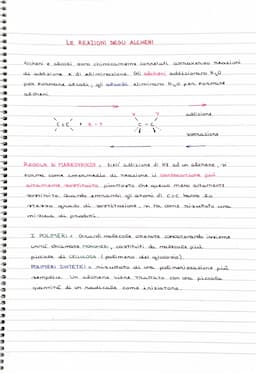 LE REAZIONI DEGLI ALCHENI
Alcheni e alcoli sono chimicamente correlati attraverso reazioni
di addizione e di eliminazione. Gli alcheni addizionano H2O
per formare alcoli, gli alcoli eliminano H2O per formare
alcheni.
addizione
C=C + X-Y
X Y
C-C
eliminazione
REGOLA DI MARKOVNIKOV: Nell'addizione di HX ad un alchene, si
forma come intermedio di reazione il carbocatione più
altamente sostituito piuttosto che quello meno altamente
sostituito. Quando entrambi gli atomi di C=C hanno lo
stesso grado di sostituzione, si ha come risultato una
miscela di prodotti.
I POLIMERI: Grandi molecole ottenute concatenando insieme
unità chiamate monomeri, costituiti da molecole più
piccole. es CELLULOSA (polimero del glucosio).
POLIMERI SINTETICI: risultato di una polimerizzazione più
semplice. Un alchene viene trattato con una piccola
quantità di un radicale come iniziatore.